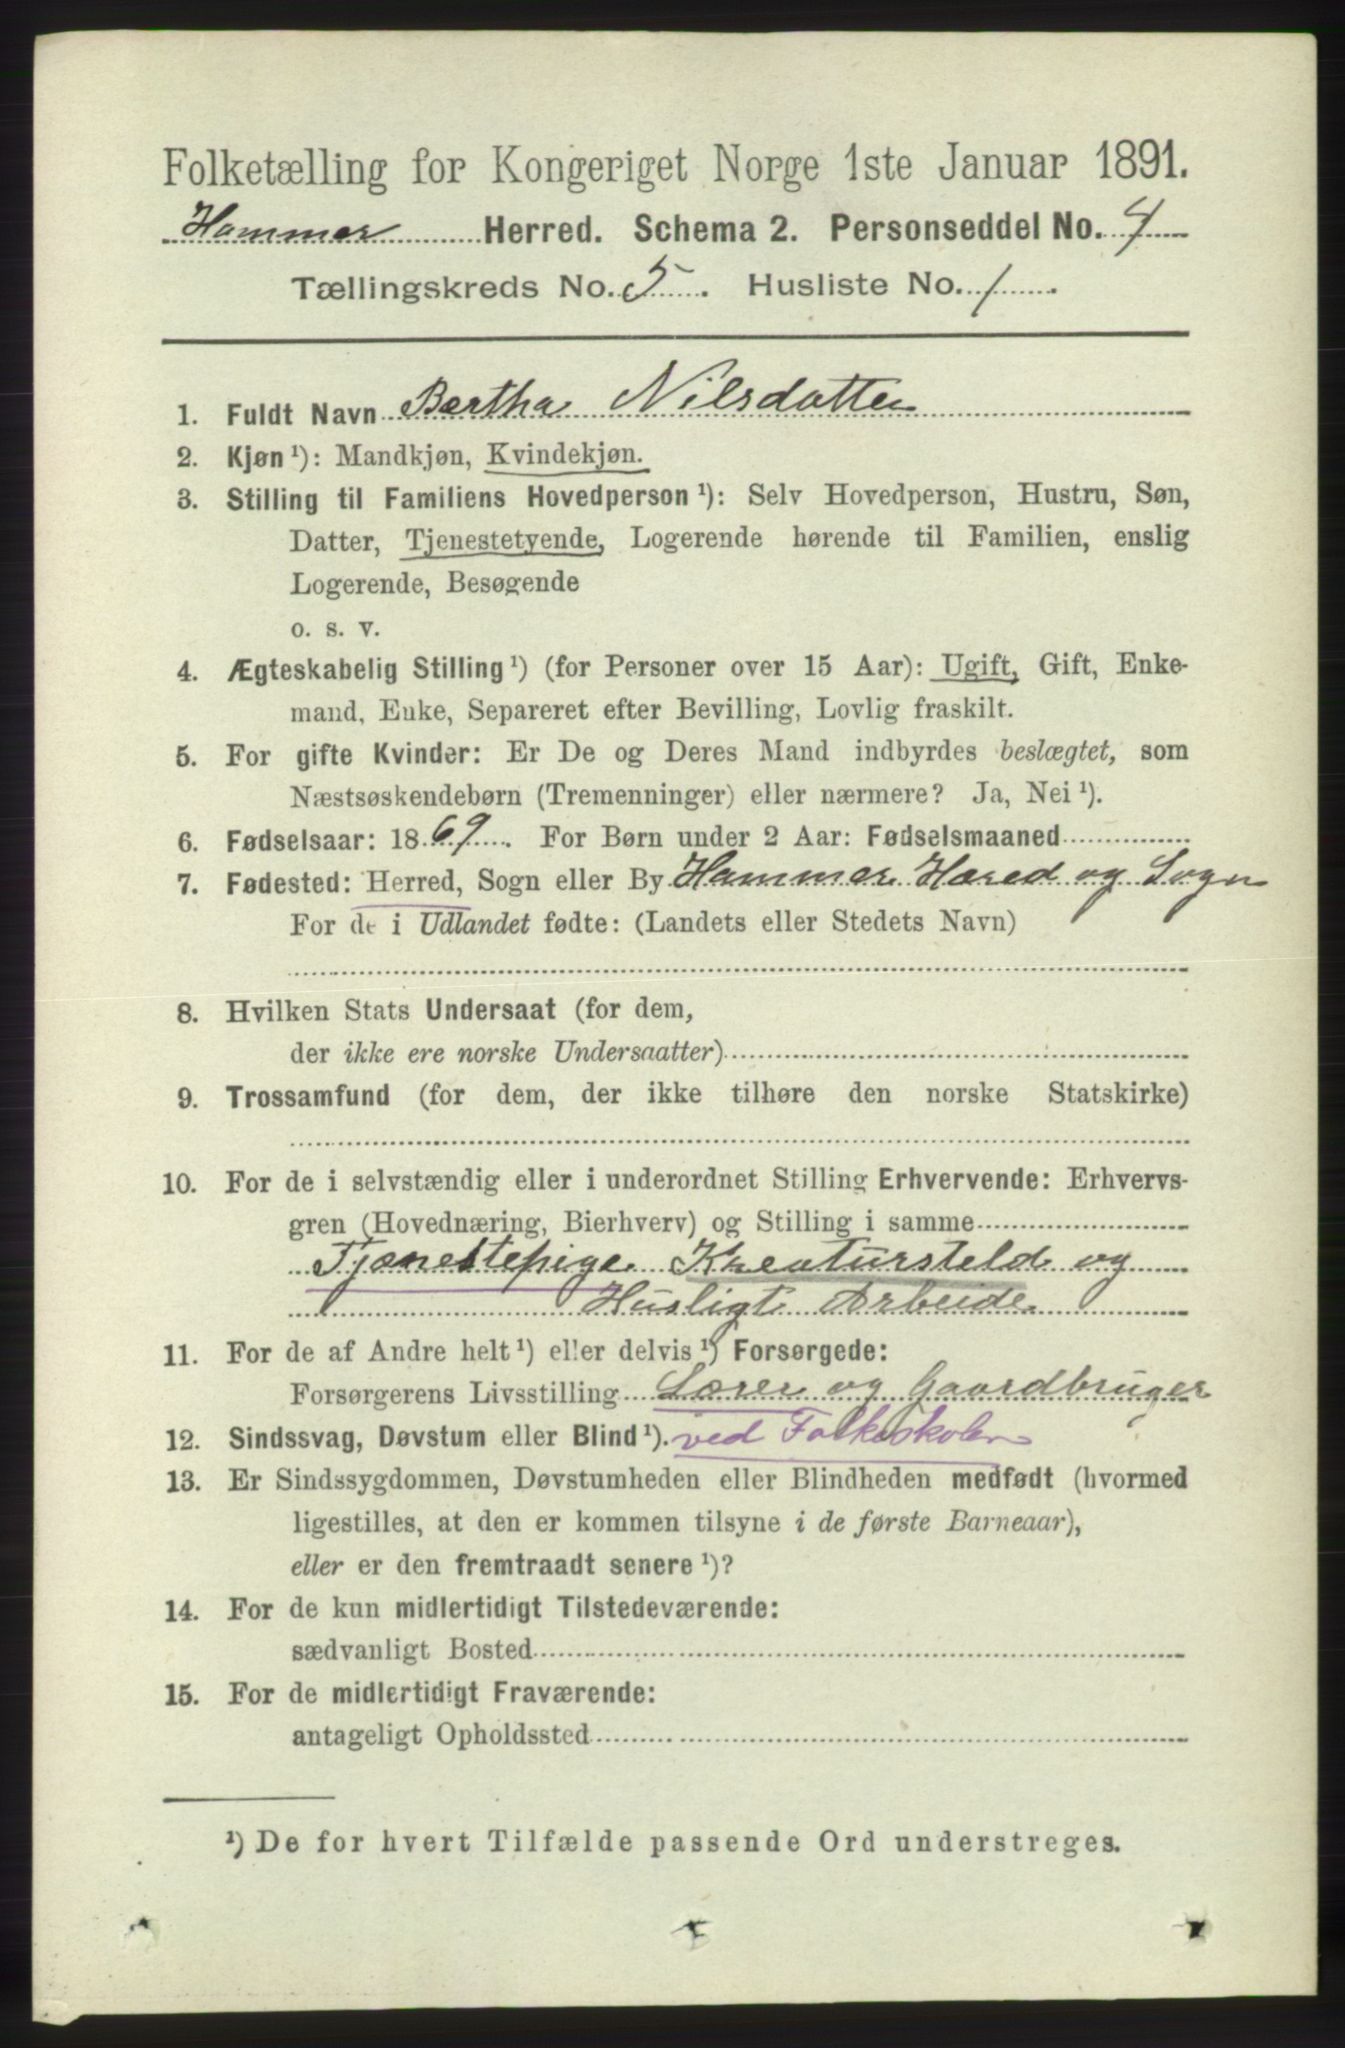 Folketælling for Kongeriget Norge 1ste Januar 1891.
Hammer Herred. Schema 2. Personseddel No. 4
Tællingskreds No. 5. Husliste No. 1.
1. Fuldt Navn Bertha Nilsdatter
2. Kjøn ¹): Mandkjøn, Kvindekjøn.
3. Stilling til Familiens Hovedperson ¹): Selv Hovedperson, Hustru, Søn,
Datter, Tjenestetyende, Logerende hørende til Familien, enslig
Logerende, Besøgende
o. s. v.
4. Ægteskabelig Stilling ¹) (for Personer over 15 Aar): Ugift, Gift, Enke-
mand, Enke, Separeret efter Bevilling, Lovlig fraskilt.
5. For gifte Kvinder: Er De og Deres Mand indbyrdes beslægtet, som
Næstsøskendebørn (Tremenninger) eller nærmere? Ja, Nei ¹).
6. Fødselsaar: 1869. For Børn under 2 Aar: Fødselsmaaned
7. Fødested: Herred, Sogn eller By Hammer Hæred og Sogn
For de i Udlandet fødte: (Landets eller Stedets Navn)
8. Hvilken Stats Undersaat (for dem,
der ikke ere norske Undersaatter)
9. Trossamfund (for dem, der ikke tilhøre den norske Statskirke)
10. For de i selvstændig eller i underordnet Stilling Erhvervende: Erhvervs-
gren (Hovednæring, Bierhverv) og Stilling i samme
Tjænestepige Kreatursteld og
Husligt Arbeide
11. For de af Andre helt ¹) eller delvis ¹) Forsørgede:
Forsørgerens Livsstilling Lærer og Gaardbruger
12. Sindssvag, Døvstum eller Blind ¹). ved Folkeskolen
13. Er Sindssygdommen, Døvstumheden eller Blindheden medfødt (hvormed
ligestilles, at den er kommen tilsyne i de første Barneaar),
eller er den fremtraadt senere ¹)?
14. For de kun midlertidigt Tilstedeværende:
sædvanligt Bosted
15. For de midlertidigt Fraværende:
antageligt Opholdssted
¹) De for hvert Tilfælde passende Ord understreges.